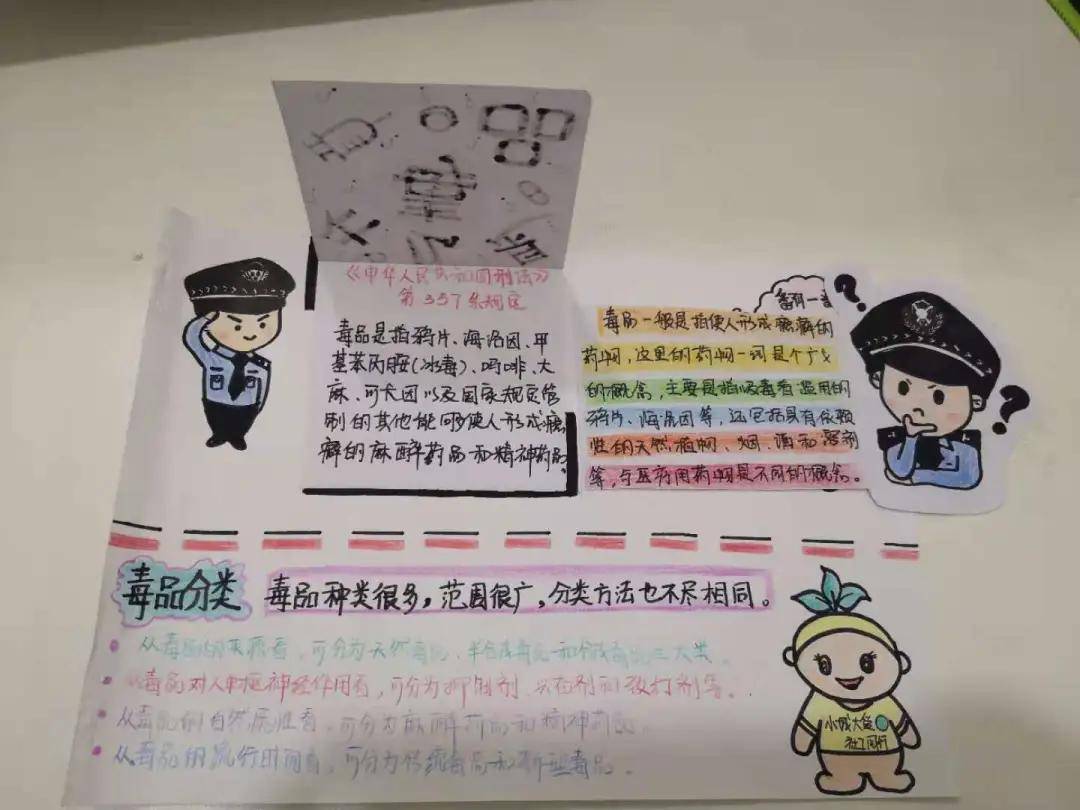 《中华人民共和国刑法》
第357条规定
毒品是指鸦片、海洛因、甲
基苯丙胺(冰毒)、吗啡、大
麻、可卡因以及国家规定管
制的其他能够使人形成瘾
癖的麻醉药品和精神药品。
毒品一般是指使人形成瘾癖的
药物,这里的药物一词是个广义
的概念,主要是指吸毒者滥用的
鸦片、海洛因等,还包括具有依赖
性的天然植物、烟、酒和溶剂
等,与医药用药物是不同的概念。
毒品分类
毒品种类很多,范围很广,分类方法也不尽相同。
从毒品的来源看,可分为天然毒品、半合成毒品和合成毒品三大类。
从毒品对人中枢神经作用看,可分为抑制剂、兴奋剂和致幻剂等。
从毒品的自然属性看,可分为麻醉药品和精神药品。
从毒品的流行时间看,可分为传统毒品和新型毒品。
小城大
同行